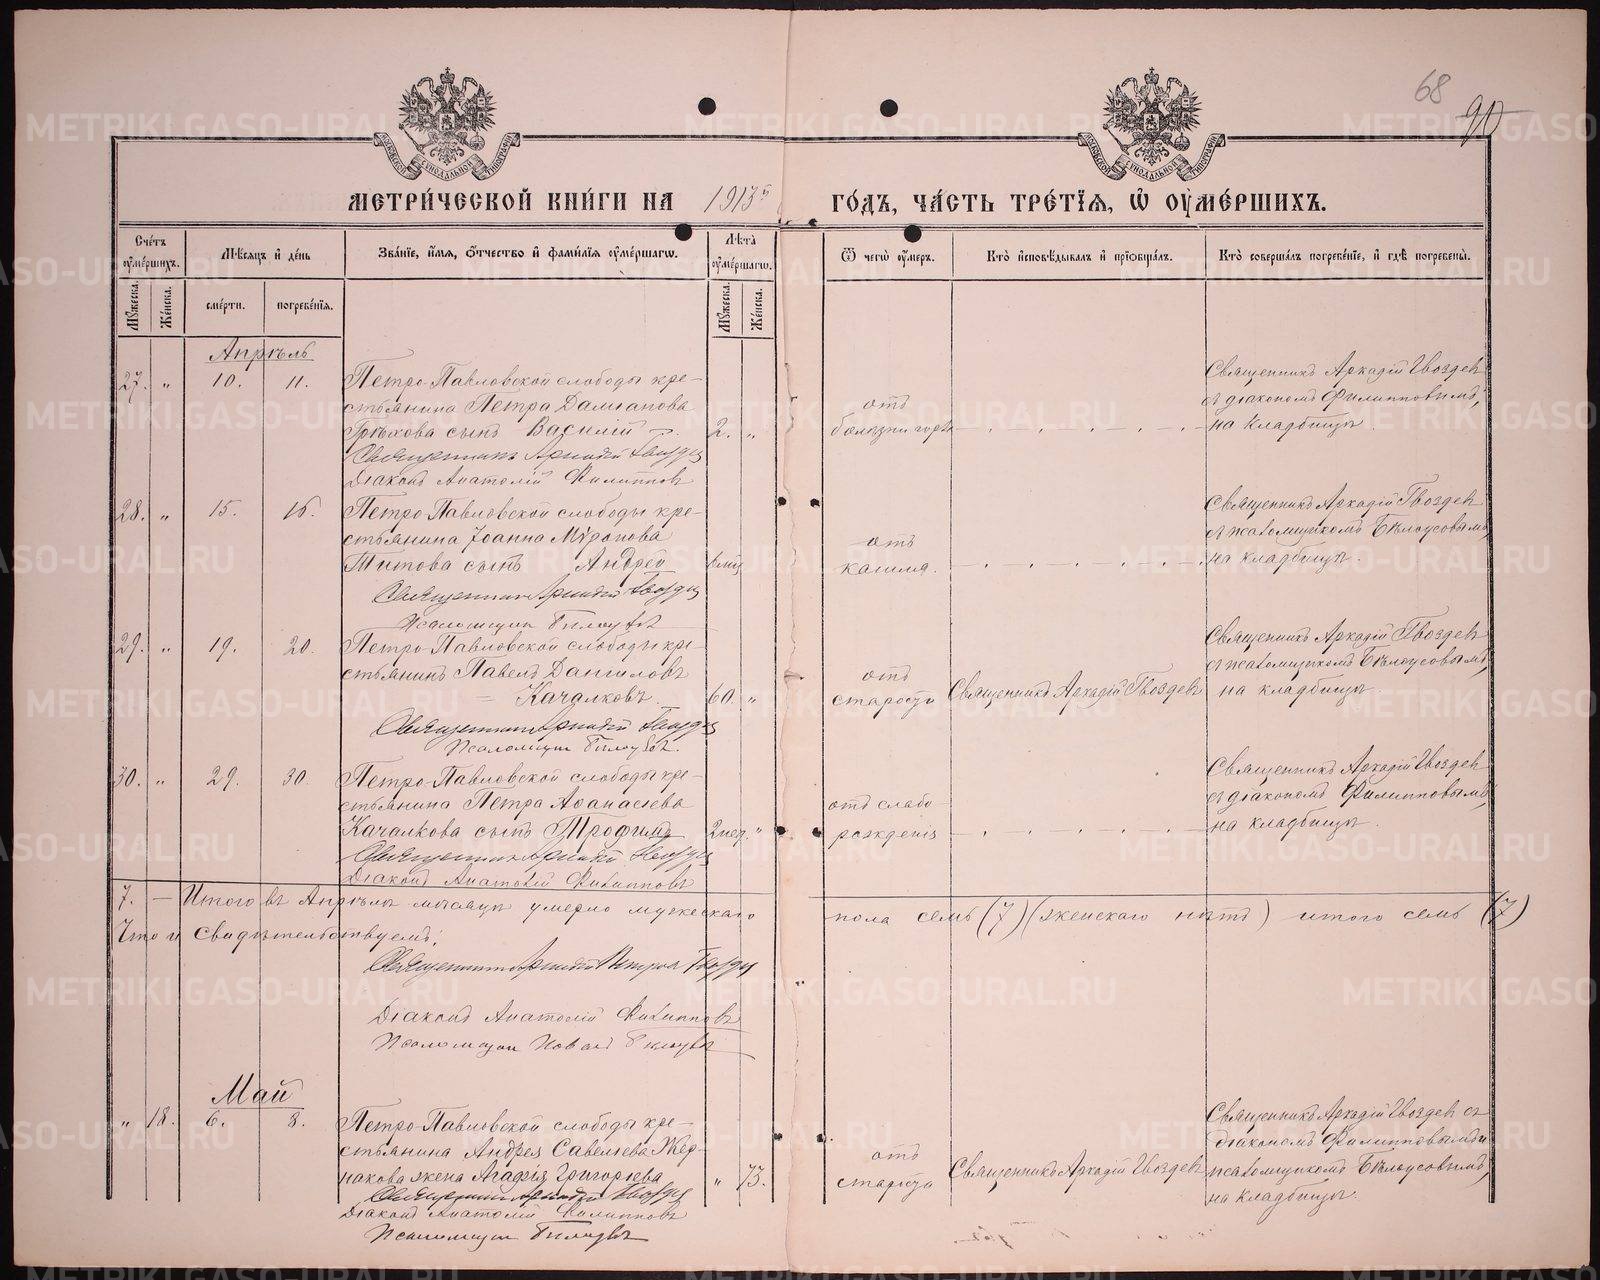 68
90
МЕТРИ́ЧЕСКОЙ КНИ́ГИ НА 1913й ГО́ДЪ, ЧА́СТЬ ТРЕ́ТІѦ, Ѡ҆ ОУ҆МЕ́РШИХЪ.
Сче́тъ оу҆ме́ршихъ.
Мѣ́сѧцъ и҆ де́нь
Зва́нїе, и҆́мѧ, ѻ҆́тчество и҆ фами́лїѧ оу҆ме́ршагѡ.
Лѣ́та оу҆ме́ршагѡ.
Ѿ чегѡ̀ оу҆́меръ.
Кто̀ и҆сповѣ́дывалъ и҆ прїѡбща́лъ.
Кто̀ соверша́лъ погребе́нїе, и҆ гдѣ̀ погребены̀.
Мꙋ́жеска.
Же́нска.
сме́рти.
погребе́нїѧ.
Мꙋ́жеска.
Же́нска.
Апрѣль
27. „ 10. 11.
Петро-Павловской слободы кре-
стьянина Петра Даміанова
Грѣхова сынъ Василій 2. „
Священникъ Аркадій Гвоздев
Діаконъ Анатолій Филиппов
отъ
болѣзни горла
Священникъ Аркадій Гвоздев
съ діакономъ Филипповымъ,
на кладбищѣ.
28. „ 15. 16.
Петро-Павловской слободы кре-
стьянина Іоанна Мѵронова
Титова сынъ Андрей
Священник Аркадій Гвоздев
Псаломщик Бѣлоусов
отъ
кашля.
Священникъ Аркадій Гвоздев
съ псаломщикомъ Бѣлоусовымъ,
на кладбищѣ.
29. „ 19. 20.
Петро-Павловской слободы кре-
стьянинъ Павелъ Даниловъ
Качалковъ. 60. „
Священник Аркадій Гвоздев
Псаломщик Бѣлоусов.
отъ
старости
Священникъ Аркадій Гвоздев
Священникъ Аркадій Гвоздев
съ псаломщикомъ Бѣлоусовымъ,
на кладбищѣ.
30. „ 29. 30.
Петро-Павловской слободы кре-
стьянина Петра Аѳанасіева
Качалкова сынъ Трофимъ 2 нед. „
Священник Аркадій Гвоздев
Діаконъ Анатолій Филипповъ
отъ слабо
рожденія
Священникъ Аркадій Гвоздев
съ діакономъ Филипповымъ,
на кладбищѣ.
7. — Итого въ Апрѣлѣ мѣсяцѣ умерло мужескаго пола семь (7) (женскаго нѣтъ) итого семь (7)
Что и свидѣтельствуемъ:
Священник Аркадій Петров Гвоздев
Діаконъ Анатолій Филипповъ
Псаломщик Павел Бѣлоусов
Май
„ 18. 6. 8.
Петро-Павловской слободы кре-
стьянина Андрея Савелиева Жер-
накова жена Агафія Григориева „ 73.
Священник Аркадій Гвоздев
Діаконъ Анатолій Филипповъ
Псаломщик Бѣлоусов
отъ
старости
Священникъ Аркадій Гвоздев
Священникъ Аркадій Гвоздев съ
діакономъ Филипповымъ и
псаломщикомъ Бѣлоусовымъ,
на кладбищѣ.
METRIKI.GASO-URAL.RU